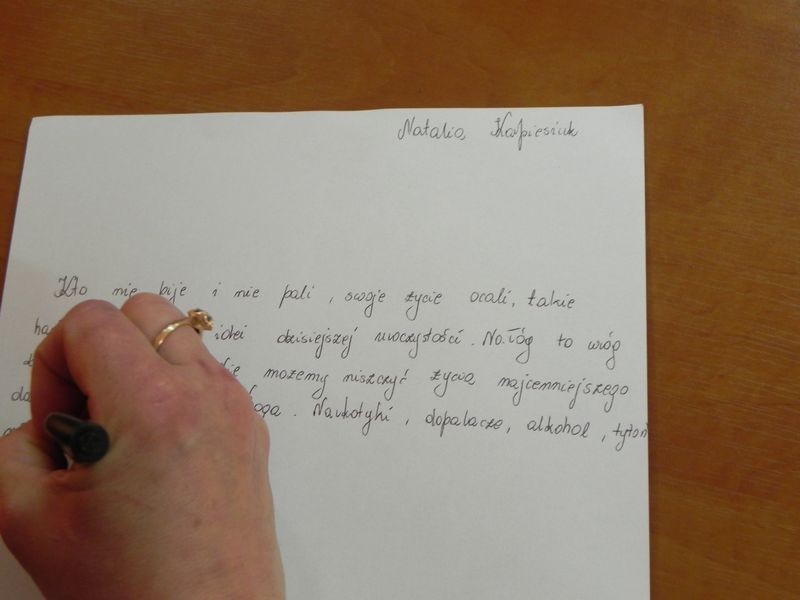 Natalia Karpiesiuk
Kto nie pije i nie pali, swoje życie ocali, takie
ha idei dzisiejszej uroczystości. Nałóg to wróg
możemy niszczyć życia najcenniejszego
Boga. Narkotyki, dopalacze, alkohol, tytoń